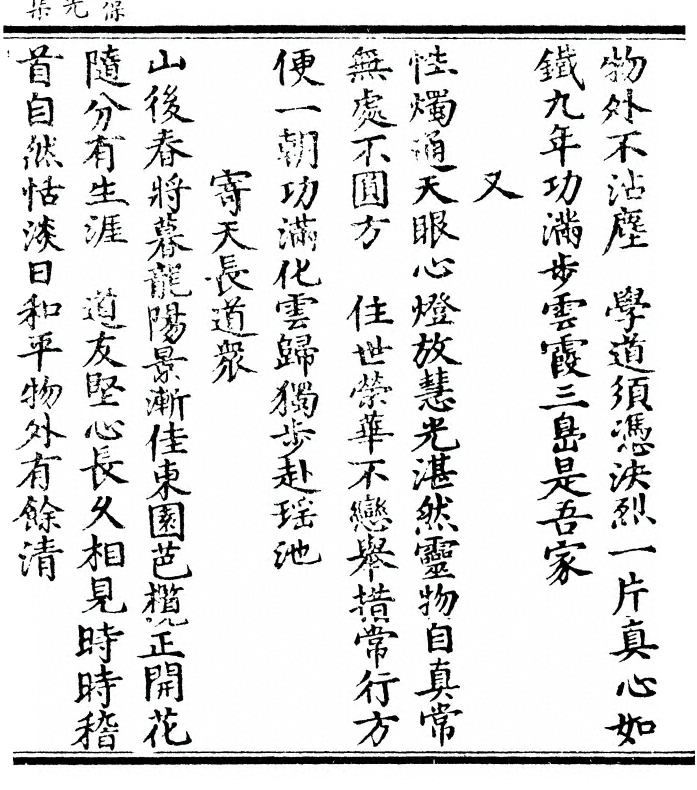 物外不沾塵　學道須憑決烈一片真心如
鐵九年功滿步雲霞三島是吾家
又
性燭通天眼心燈放慧光湛然靈物自真常
無處不圓方　住世榮華不戀舉措常行方
便一朝功滿化雲歸獨步赴瑶池
寄天長道衆
山後春將暮龍陽景漸佳東園芭欖正開花
隨分有生涯　道友堅心長久相見時時稽
首自然恬淡日和平物外有餘清